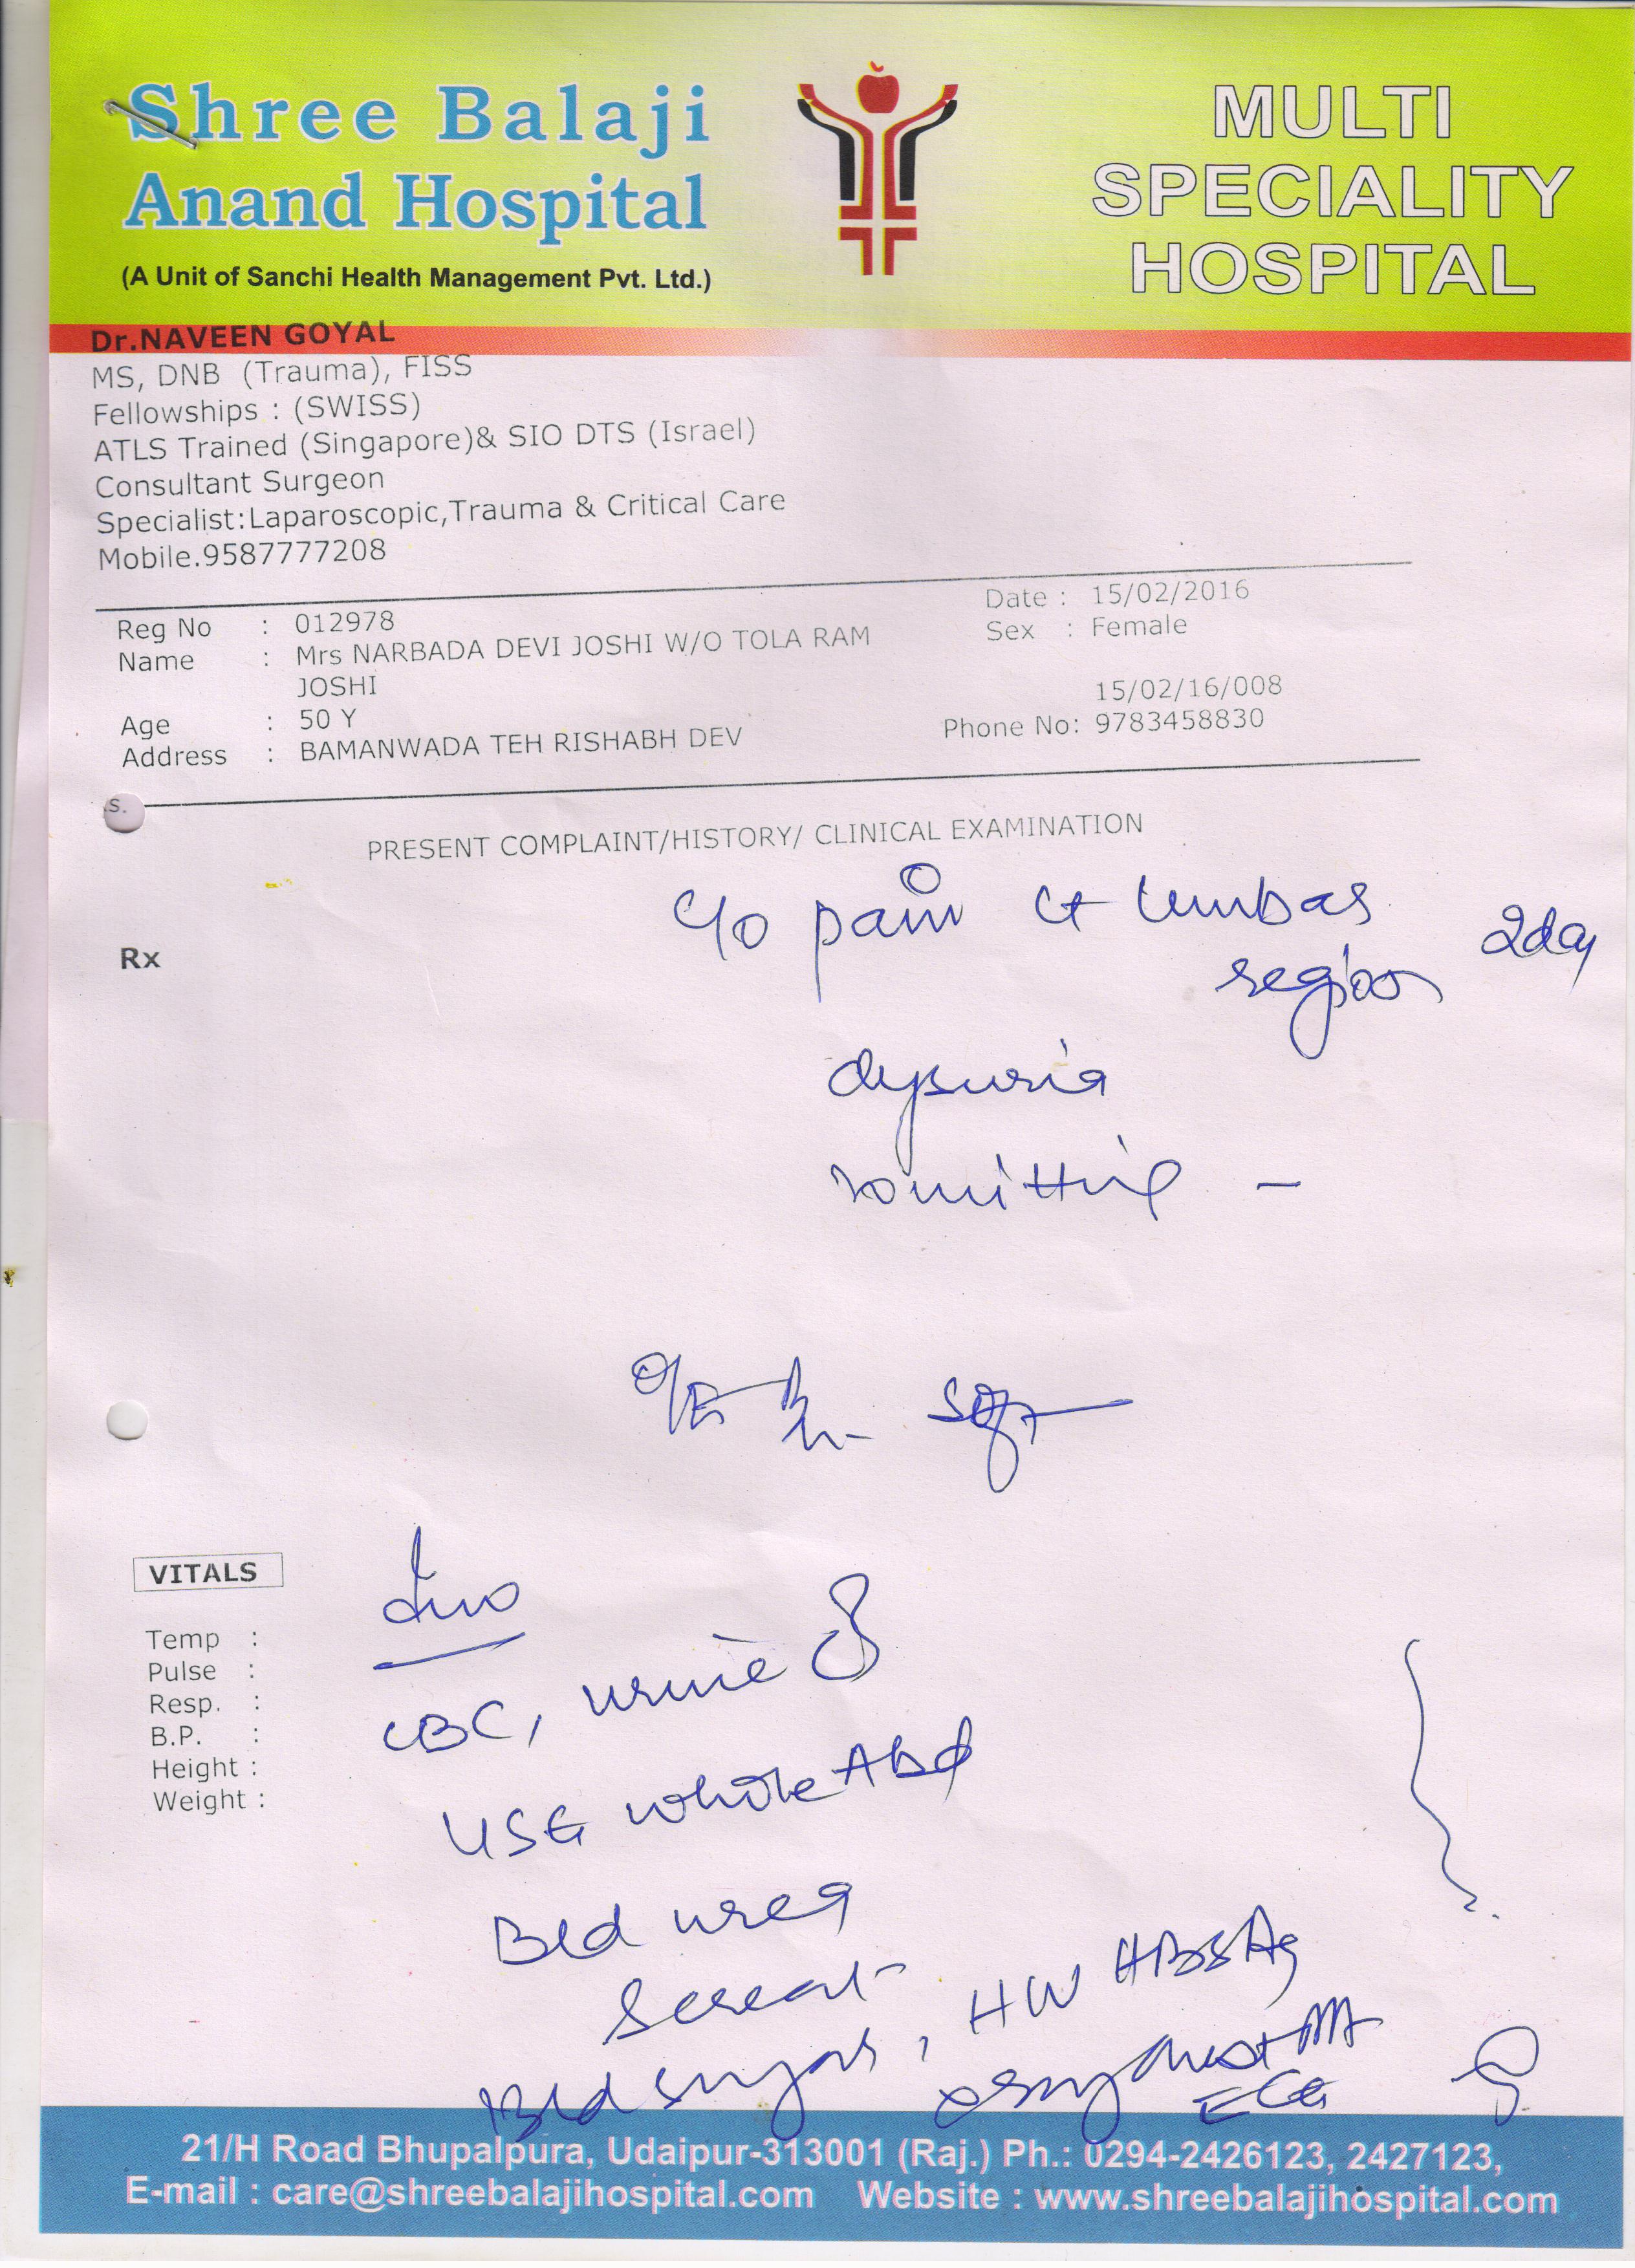 Shree Balaji
Anand Hospital
(A Unit of Sanchi Health Management Pvt. Ltd.)
MULTI
SPECIALITY
HOSPITAL
Dr.NAVEEN GOYAL
MS, DNB (Trauma), FISS
Fellowships : (SWISS)
ATLS Trained (Singapore)& SIO DTS (Israel)
Consultant Surgeon
Specialist:Laparoscopic,Trauma & Critical Care
Mobile.9587777208
Reg No : 012978 Date : 15/02/2016
Name : Mrs NARBADA DEVI JOSHI W/O TOLA RAM Sex : Female
JOSHI 15/02/16/008
Age : 50 Y Phone No: 9783458830
Address : BAMANWADA TEH RISHABH DEV
S.
PRESENT COMPLAINT/HISTORY/ CLINICAL EXAMINATION
Rx
c/o pain lumbar 2day
region
dysuria
vomitting -
O/E soft
VITALS
Temp :
Pulse :
Resp. :
B.P. :
Height :
Weight :
CBC, urine
USG whole Abd
Bld urea
Screat
Bld sugar, HIV HBSAg
ECG
21/H Road Bhupalpura, Udaipur-313001 (Raj.) Ph.: 0294-2426123, 2427123,
E-mail : care@shreebalajihospital.com Website : www.shreebalajihospital.com